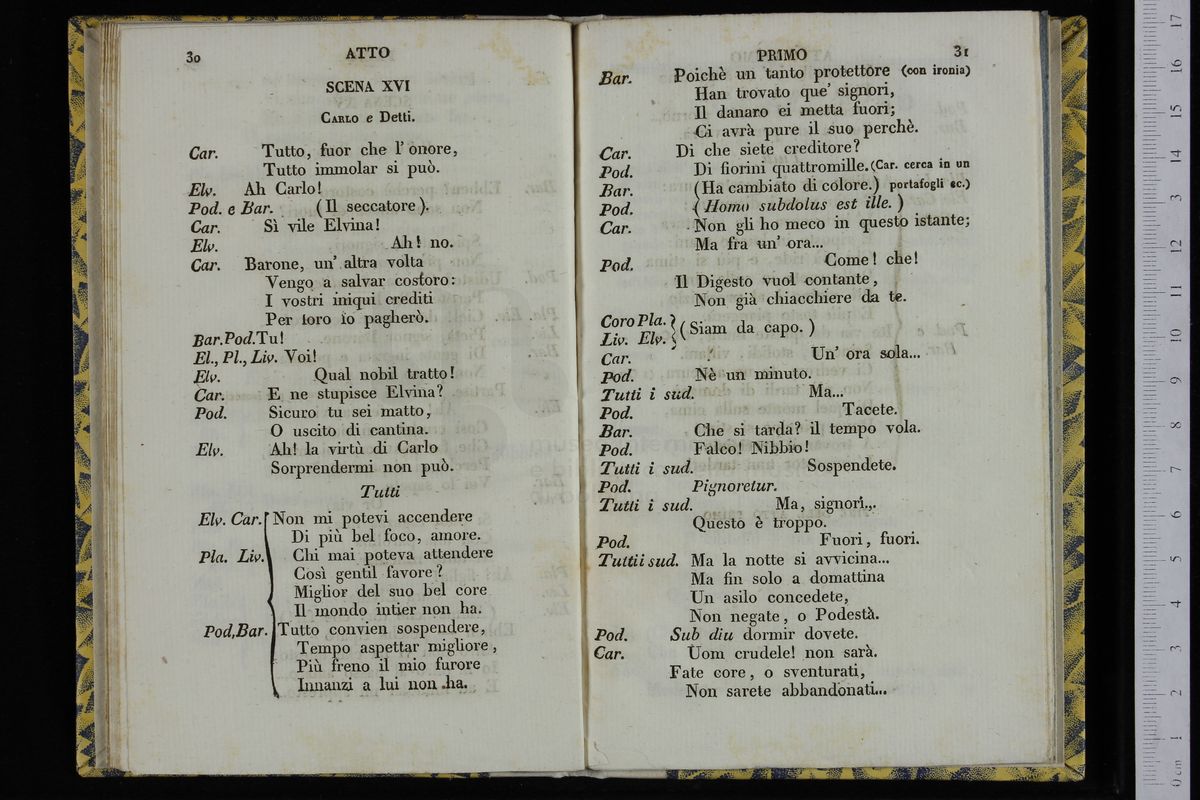 30 ATTO
SCENA XVI
CARLO e Detti.
Car. Tutto, fuor che l' onore,
Tutto immolar si può.
Elv. Ah Carlo!
Pod. e Bar. (Il seccatore).
Car. Sì vile Elvina!
Elv. Ah! no.
Car. Barone, un' altra volta
Vengo a salvar costoro:
I vostri iniqui crediti
Per loro io pagherò.
Bar.Pod.Tu!
El., Pl., Liv. Voi!
Elv. Qual nobil tratto!
Car. E ne stupisce Elvina?
Pod. Sicuro tu sei matto,
O uscito di cantina.
Elv. Ah! la virtù di Carlo
Sorprendermi non può.
Tutti
Elv. Car. Non mi potevi accendere
Di più bel foco, amore.
Pla. Liv. Chi mai poteva attendere
Così gentil favore?
Miglior del suo bel core
Il mondo intier non ha.
Pod,Bar. Tutto convien sospendere,
Tempo aspettar migliore,
Più freno il mio furore
Innanzi a lui non ha.
PRIMO 31
Bar. Poichè un tanto protettore (con ironia)
Han trovato que' signori,
Il danaro ei metta fuori;
Ci avrà pure il suo perchè.
Car. Di che siete creditore?
Pod. Di fiorini quattromille. (Car. cerca in un
Bar. (Ha cambiato di colore.) portafogli ec.)
Pod. (Homo subdolus est ille.)
Car. Non gli ho meco in questo istante;
Ma fra un' ora...
Pod. Come! che!
Il Digesto vuol contante,
Non già chiacchiere da te.
Coro Pla. } (Siam da capo.)
Liv. Elv.
Car. Un' ora sola...
Pod. Nè un minuto.
Tutti i sud. Ma...
Pod. Tacete.
Bar. Che si tarda? il tempo vola.
Pod. Falco! Nibbio!
Tutti i sud. Sospendete.
Pod. Pignoretur.
Tutti i sud. Ma, signori...
Questo è troppo.
Pod. Fuori, fuori.
Tutti i sud. Ma la notte si avvicina...
Ma fin solo a domattina
Un asilo concedete,
Non negate, o Podestà.
Pod. Sub diu dormir dovete.
Car. Uom crudele! non sarà.
Fate core, o sventurati,
Non sarete abbandonati...